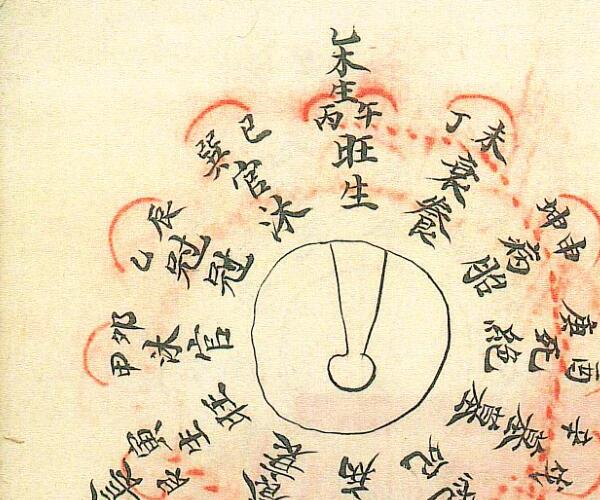 乙木生
丙午
旺
生
丁未
衰
養
坤申
病
胎
庚酉
死
絕
辛
墓
巽巳
官
沐
乙辰
冠
冠
甲卯
沐
官
艮寅
生
旺
長